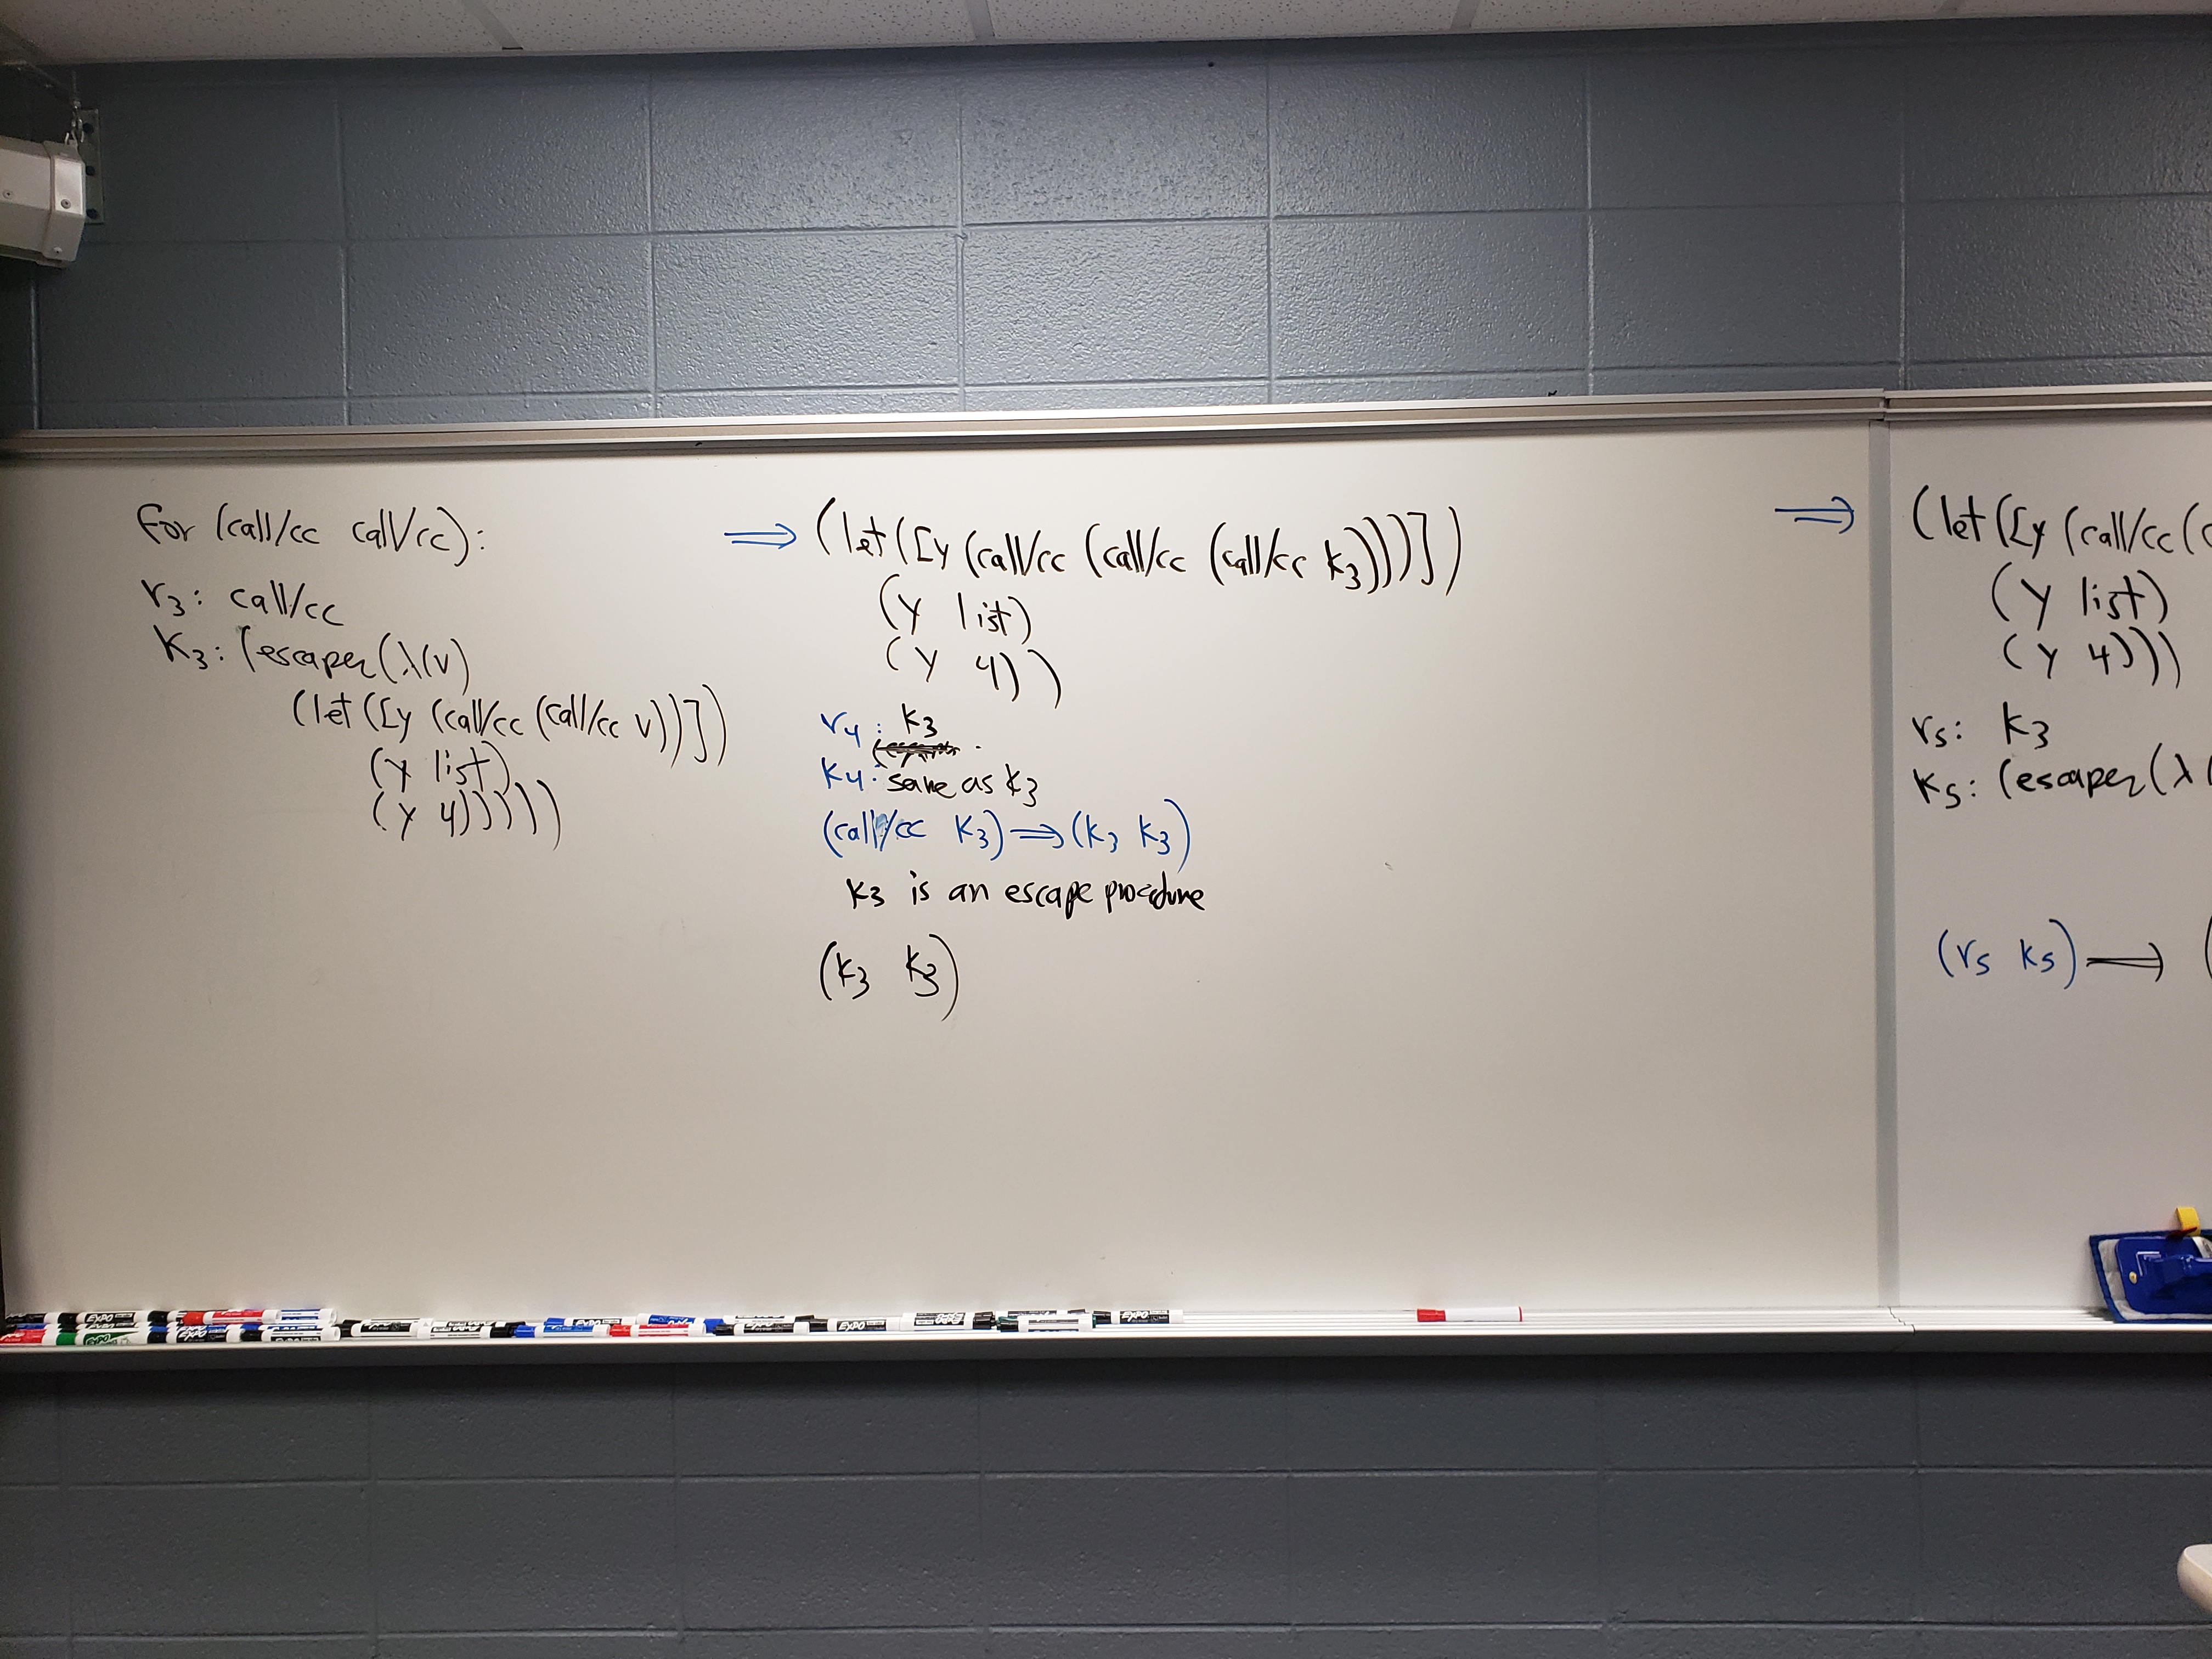 for (call/cc call/cc):
r3: call/cc
k3: (escaper (λ(v)
(let ([y (call/cc (call/cc v))])
(y list)
(y 4)))))
⟹ (let ([y (call/cc (call/cc (call/cc k3)))])
(y list)
(y 4))
r4: k3
k4: same as k3
(call/cc k3) ⟹ (k3 k3)
k3 is an escape procedure
(k3 k3)
⟹ (let ([y (call/cc (
(y list)
(y 4)))
r5: k3
k5: (escaper (λ (
(r5 k5) ⟹ (
EXPO
EXPO
EXPO
EXPO
EXPO